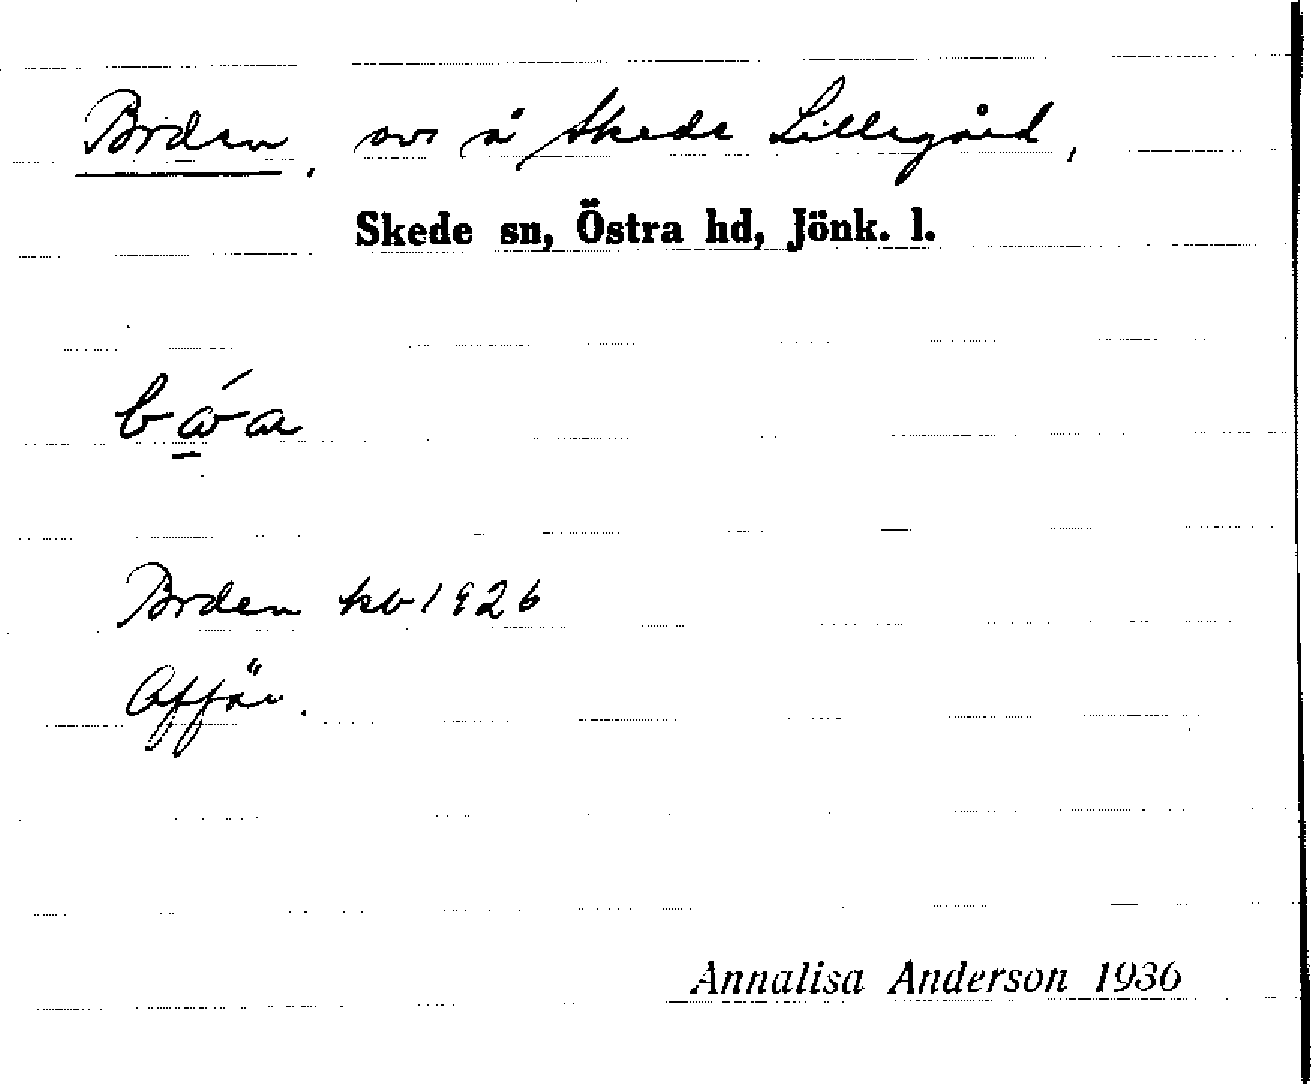 Boden, avs å Skede Lillegård,
Skede sn, Östra hd, Jönk. l.
Boden kb 1926
Affär.
Annalisa Anderson 1936